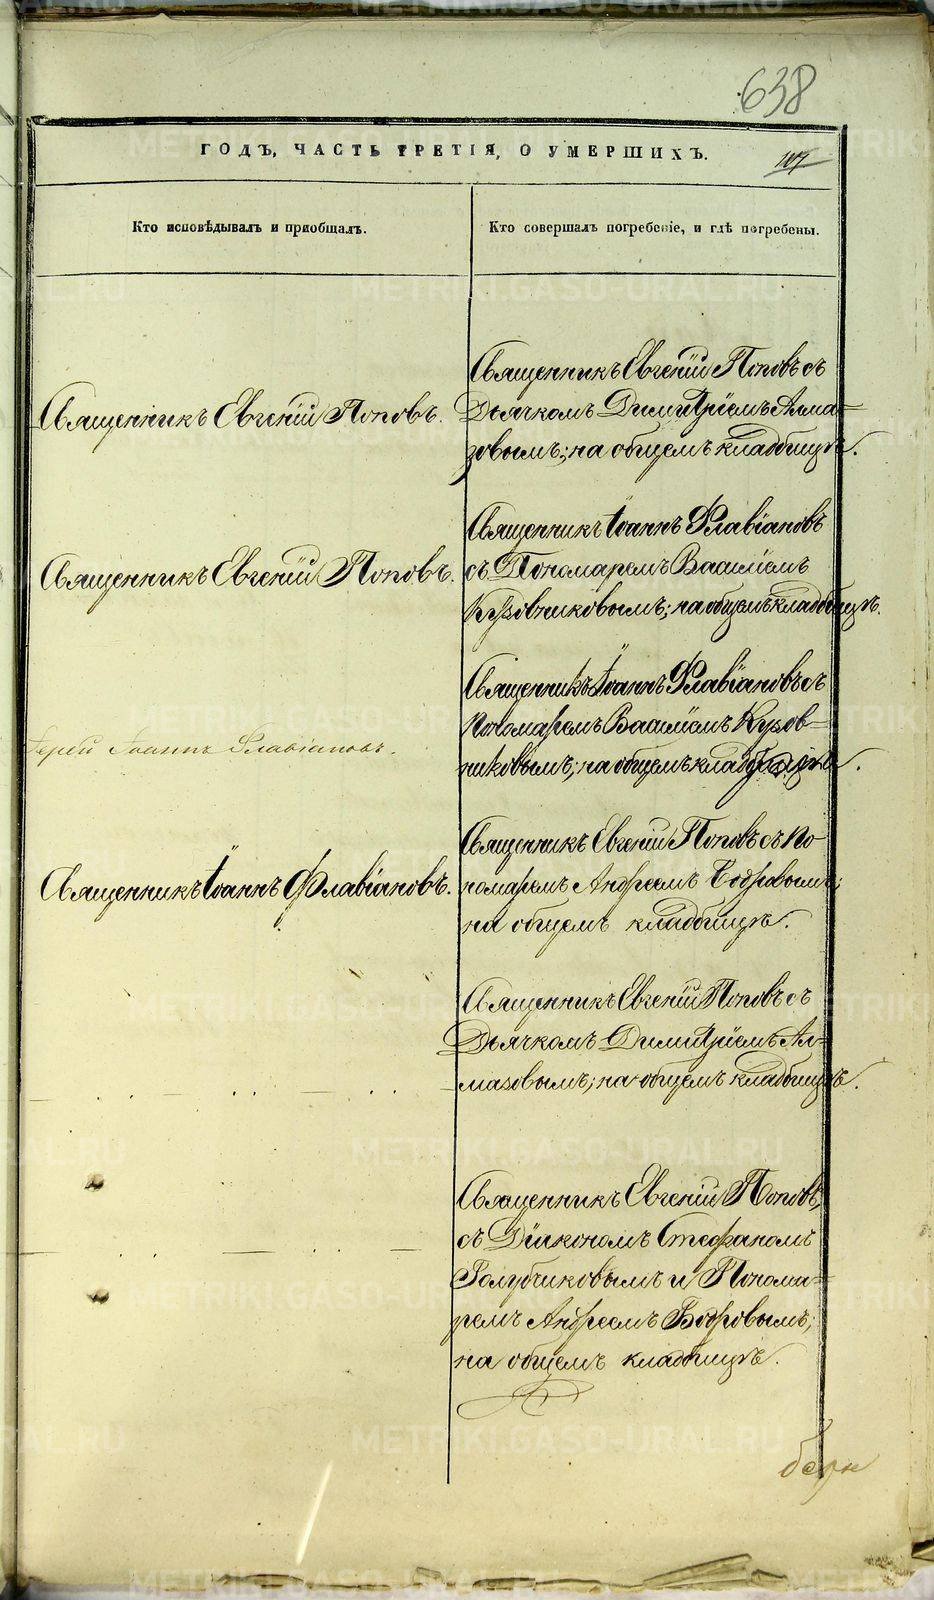 638
ГОДЪ, ЧАСТЬ ТРЕТІЯ, О УМЕРШИХЪ.
107
Кто исповѣдывалъ и пріобщалъ.
Кто совершалъ погребеніе, и гдѣ погребены.
Священникъ Евгеній Поповъ.
Священникъ Евгеній Поповъ съ
Дьячкомъ Димитріемъ Алма=
зовымъ; на общемъ кладбищѣ.
Священникъ Евгеній Поповъ.
Священникъ Іоаннъ Флавіановъ
съ Пономаремъ Василіемъ
Кузовниковымъ; на общемъ кладбищѣ.
Іерей Іоаннъ Флавіановъ.
Священникъ Іоаннъ Флавіановъ съ
Пономаремъ Василіемъ Кузов=
никовымъ; на общемъ кладбищѣ.
Священникъ Іоаннъ Флавіановъ.
Священникъ Евгеній Поповъ съ По
номаремъ Андреемъ Бобровымъ;
на общемъ кладбищѣ.
Священникъ Евгеній Поповъ съ
Дьячкомъ Димитріемъ Ал=
мазовымъ; на общемъ кладбищѣ.
Священникъ Евгеній Поповъ,
съ Діакономъ Стефаномъ
Голубчиковымъ и Понома=
ремъ Андреемъ Бобровымъ;
на общемъ кладбищѣ.
METRIKI.GASO-URAL.RU